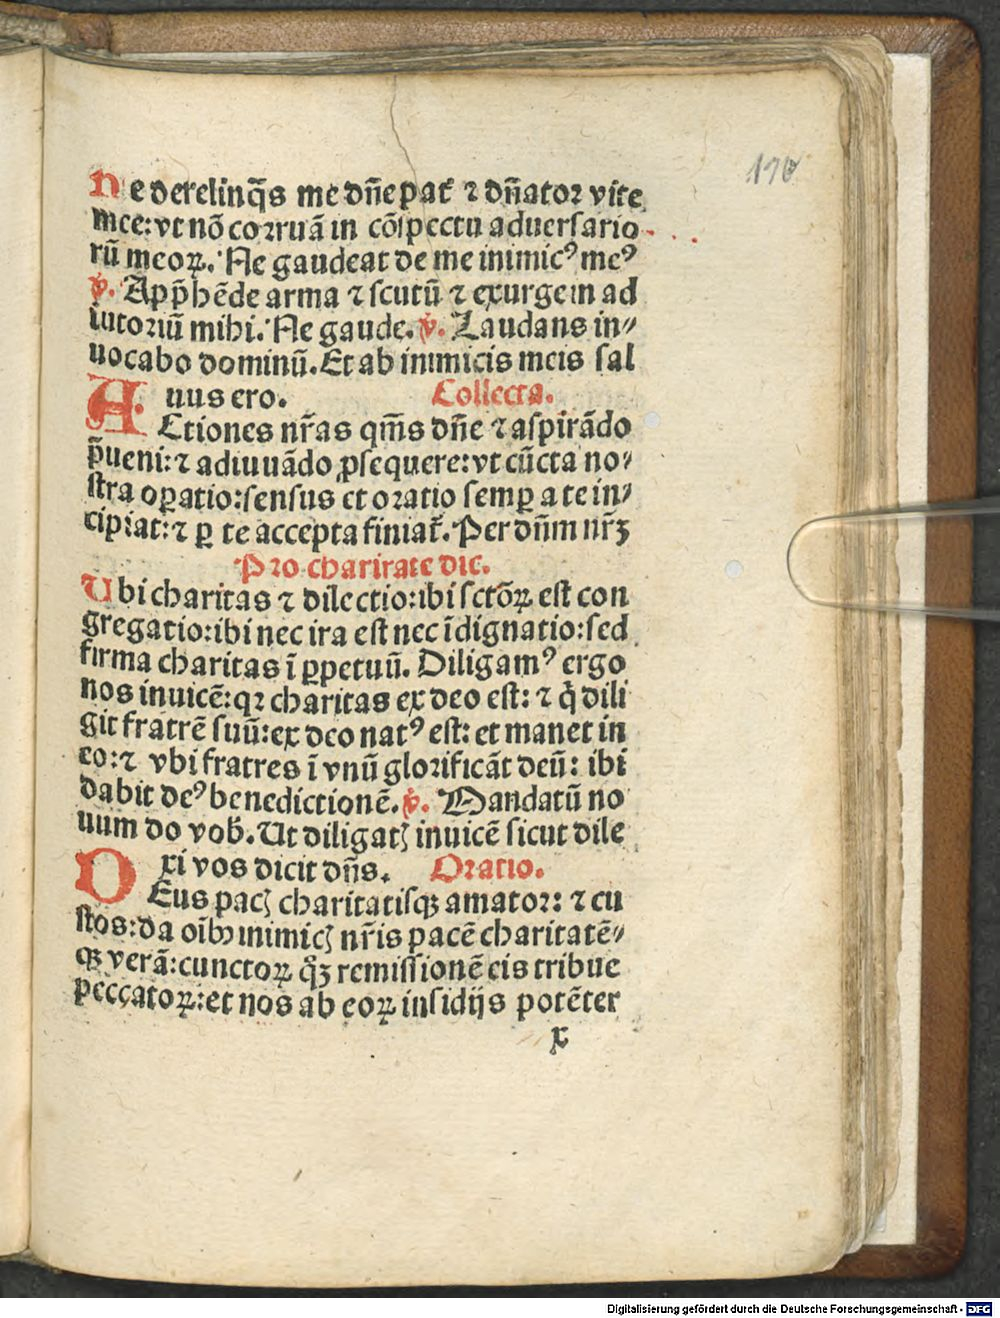 170
Ne derelinq̄s me dn̄e pať ⁊ dn̄ator vite
mee: vt nō corruā in cōspectu aduersario
rū meoꝝ. Ne gaudeat de me inimicꝰ meꝰ
v̄. App̄hēde arma ⁊ scutū ⁊ exurge in ad
iutoriū mihi. Ne gaude. v̄. Laudans in⸗
uocabo dominū. Et ab inimicis meis sal
uus ero. Collecta.
Actiones nr̄as qm̄s dn̄e ⁊ aspirādo
p̄ueni: ⁊ adiuuādo ꝓsequere: vt cūcta no⸗
stra oꝑatio: sensus et oratio semꝑ a te in⸗
cipiat: ⁊ ꝑ te accepta finiať. Per dn̄m nr̄ꝫ
Pro charitate dic.
Ubi charitas ⁊ dilectio: ibi sctōꝝ est con
gregatio: ibi nec ira est nec īdignatio: sed
firma charitas ī ꝑpetuū. Diligamꝰ ergo
nos inuicē: qꝛ charitas ex deo est: ⁊ q̇ dili
git fratrē suū: ex deo natꝰ est: et manet in
eo: ⁊ vbi fratres ī vnū glorificāt deū: ibi
dabit deꝰ benedictionē. v̄. Mandatū no
uum do vob̄. Ut diligatꝭ inuicē sicut dile
xi vos dicit dn̄s. Oratio.
Deus pacꝭ charitatisqꝫ amator: ⁊ cu
stos: da oībꝰ inimicꝭ nr̄is pacē charitatē⸗
qꝫ verā: cunctoꝝ q̄ꝫ remissionē eis tribue
peccatoꝝ: et nos ab eoꝝ insidijs potēter
x
Digitalisierung gefördert durch die Deutsche Forschungsgemeinschaft - DFG